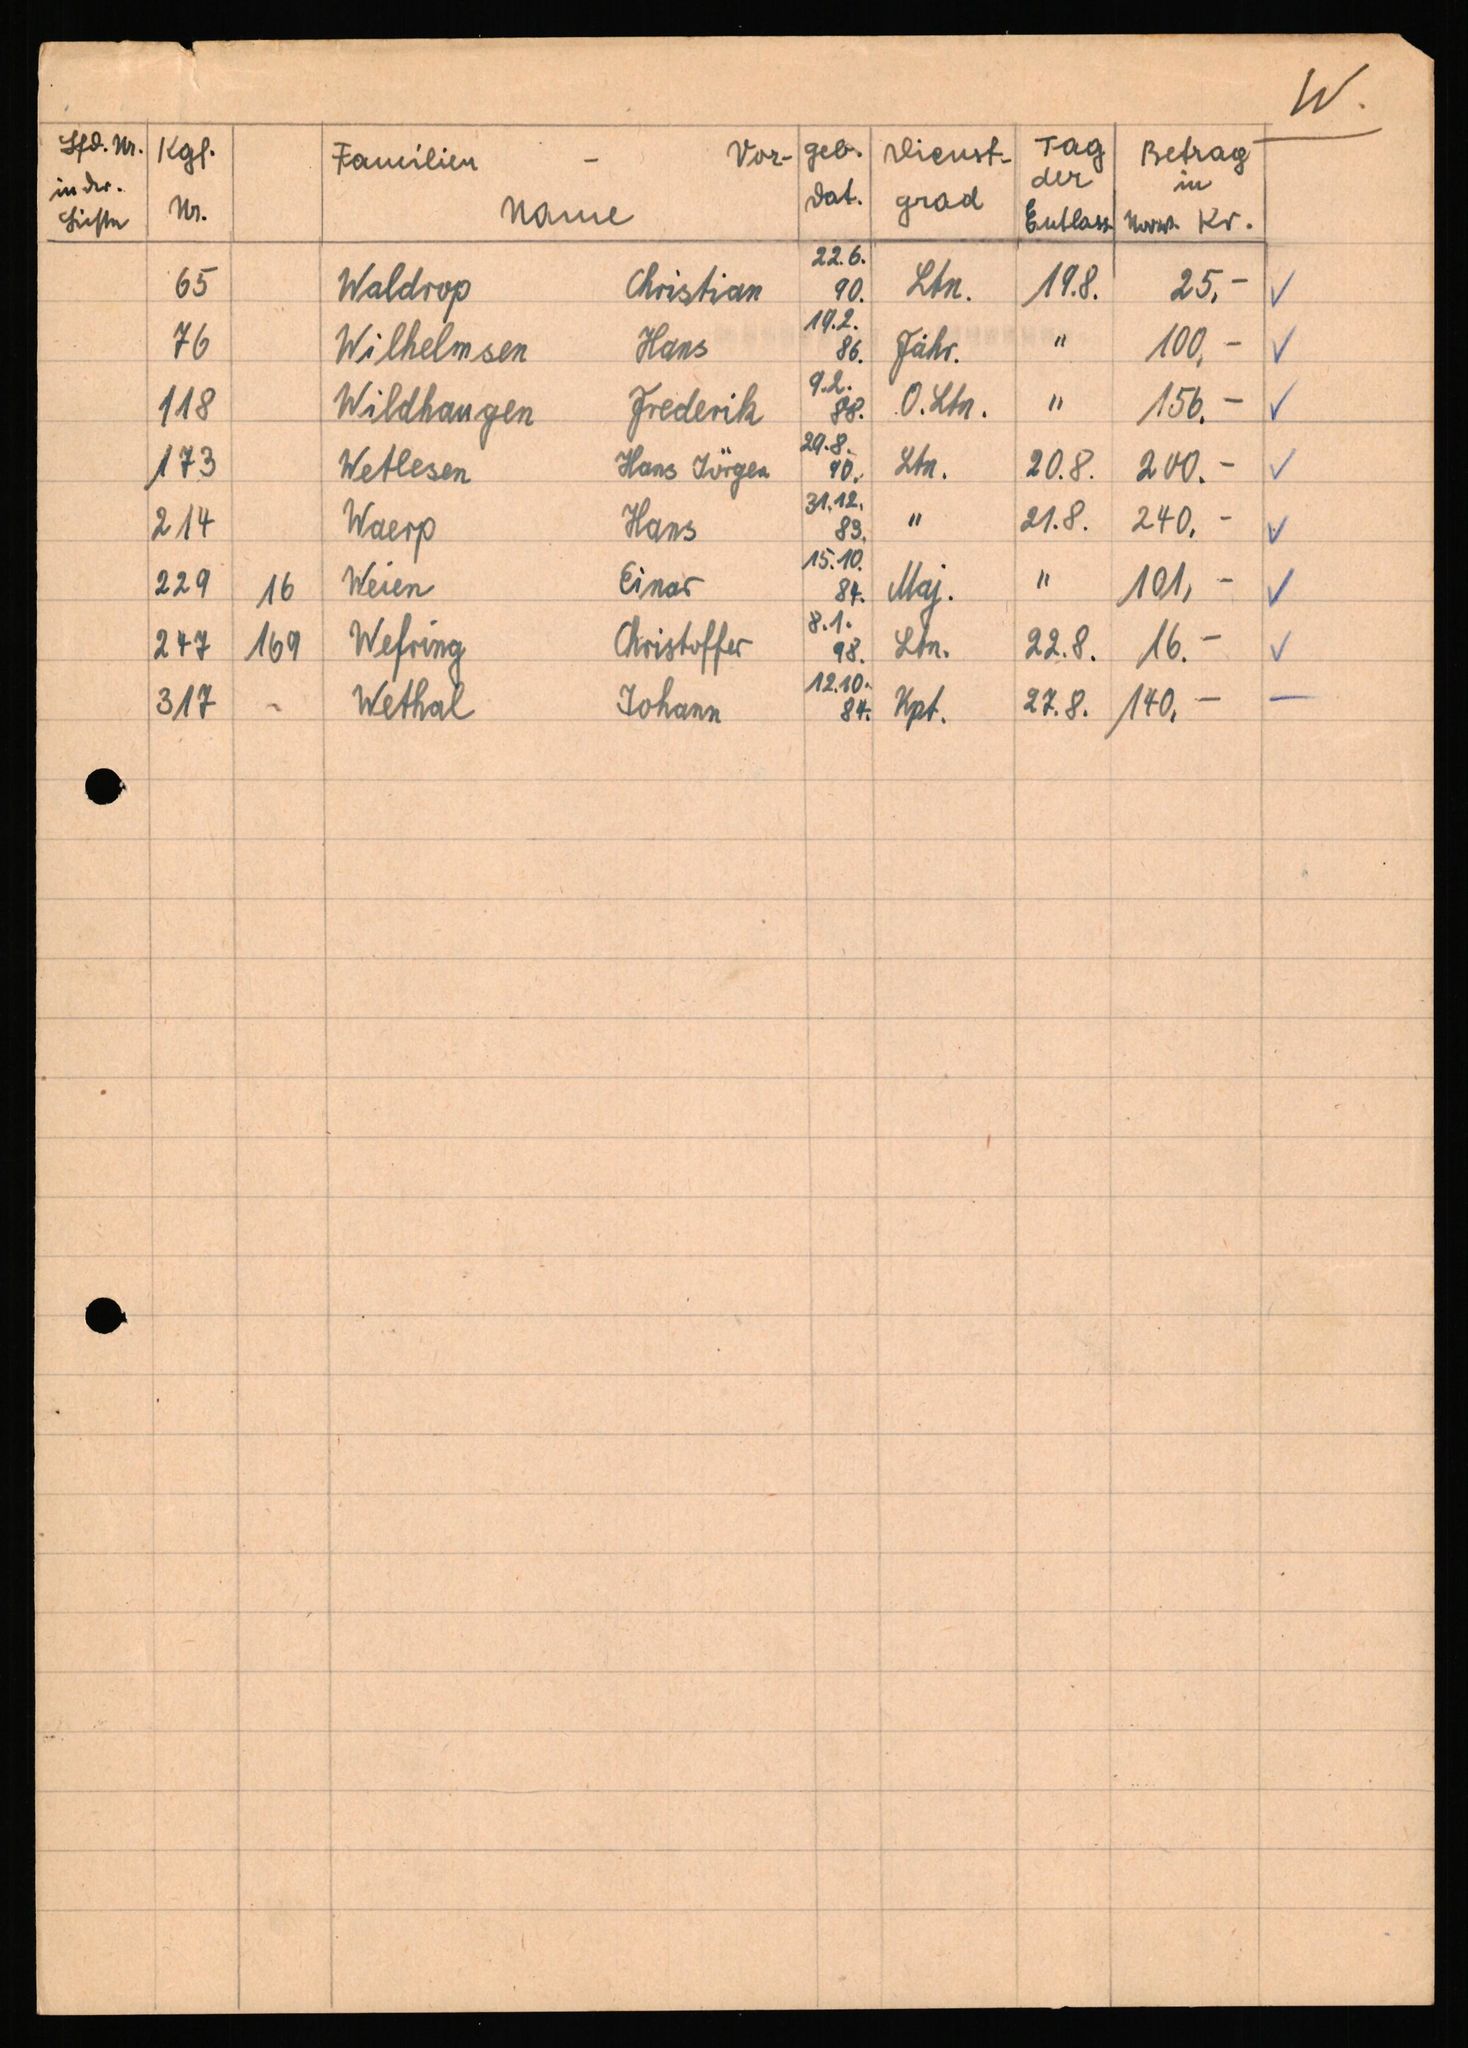 W.
Lfd. Nr. in der. Liste Kgf. Nr. Familien - Vor- Name geb. Dat. Dienst- grad Tag der Entlass. Betrag in Norw. Kr.
65 Waldrop Christian 22.6. 90. Ltn. 19.8. 25,- ✓
76 Wilhelmsen Hans 19.2. 86. Fähr. " 100,- ✓
118 Wildhaugen Frederik 9.2. 88. O.Ltn. " 156.- ✓
173 Wetlesen Hans Jörgen 29.8. 90. Ltn. 20.8. 200.- ✓
214 Waerp Hans 31.12. 83. " 21.8. 240,- ✓
229 16 Weien Einar 15.10. 84. Maj. " 101,- ✓
247 169 Wefring Christoffer 8.1. 98. Ltn. 22.8. 16.- ✓
317 - Wethal Johann 12.10. 84. Kpt. 27.8. 140,- —